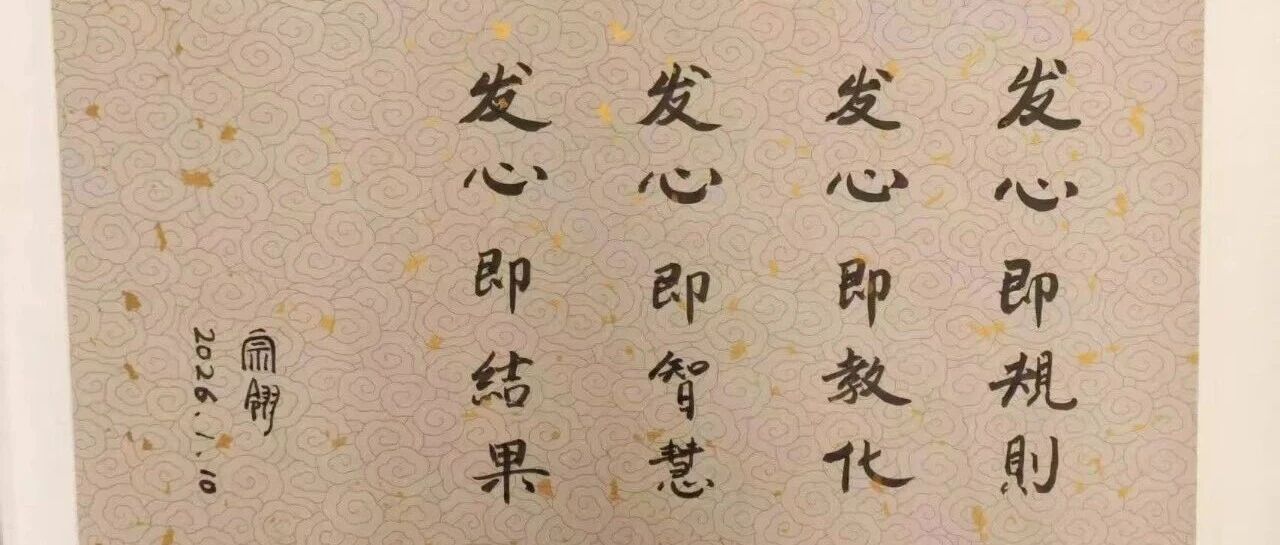 发心即规則
发心即教化
发心即智慧
发心即結果
2026.1.10